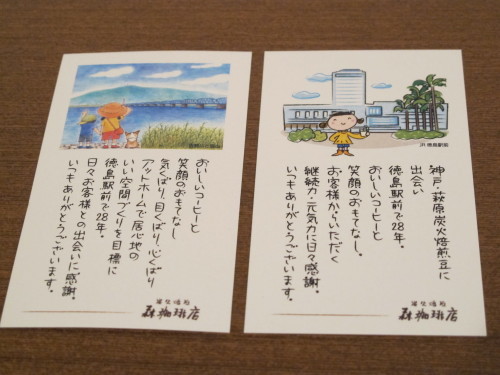 おいしいコーヒーと
笑顔のおもてなし
気くばり、目くばり、心くばり
アットホームで居心地の
いい空間づくりを目標に
徳島駅前で28年。
日々お客様との出会いに感謝。
いつもありがとうございます。
珈琲店
JR徳島駅前
神戸・萩原炭火焙煎豆に
出会い
徳島駅前で28年。
おいしいコーヒーと
笑顔のおもてなし。
お客様からいただく
継続力・元気力に日々感謝。
いつもありがとうございます。
珈琲店